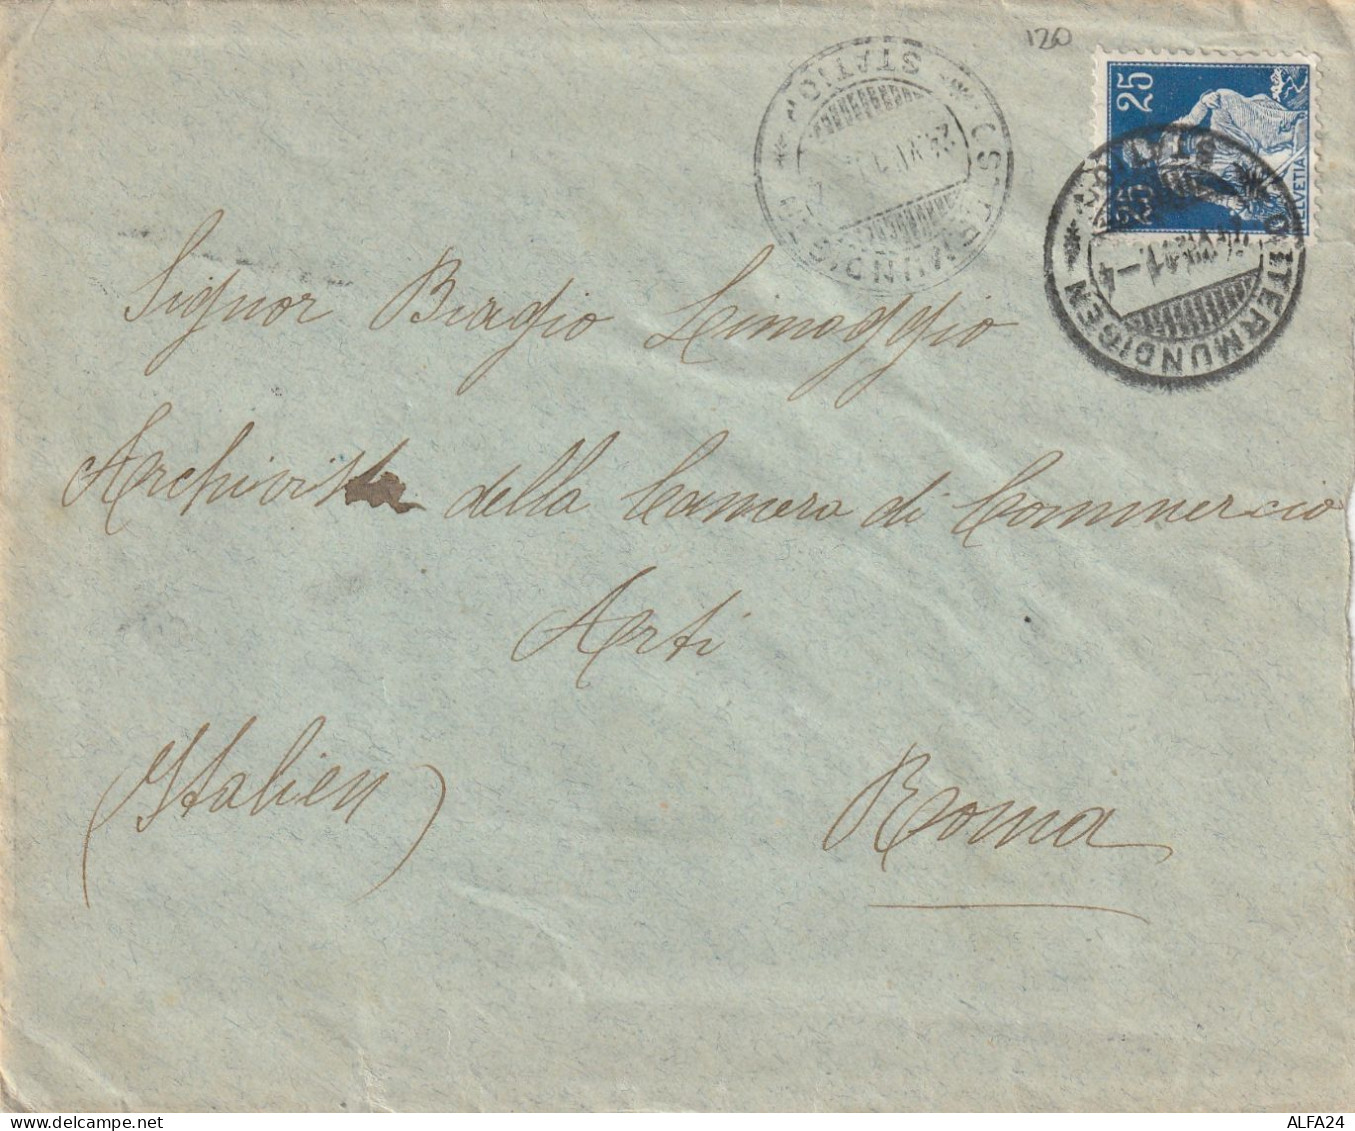 120
25
HELVETIA
OSTERMUNDIGEN
STATION
OSTERMUNDIGEN
Signor Biagio Limoggio
Archivista della Camera di Commercio
Arti
(Italien)
Roma
ALFA24